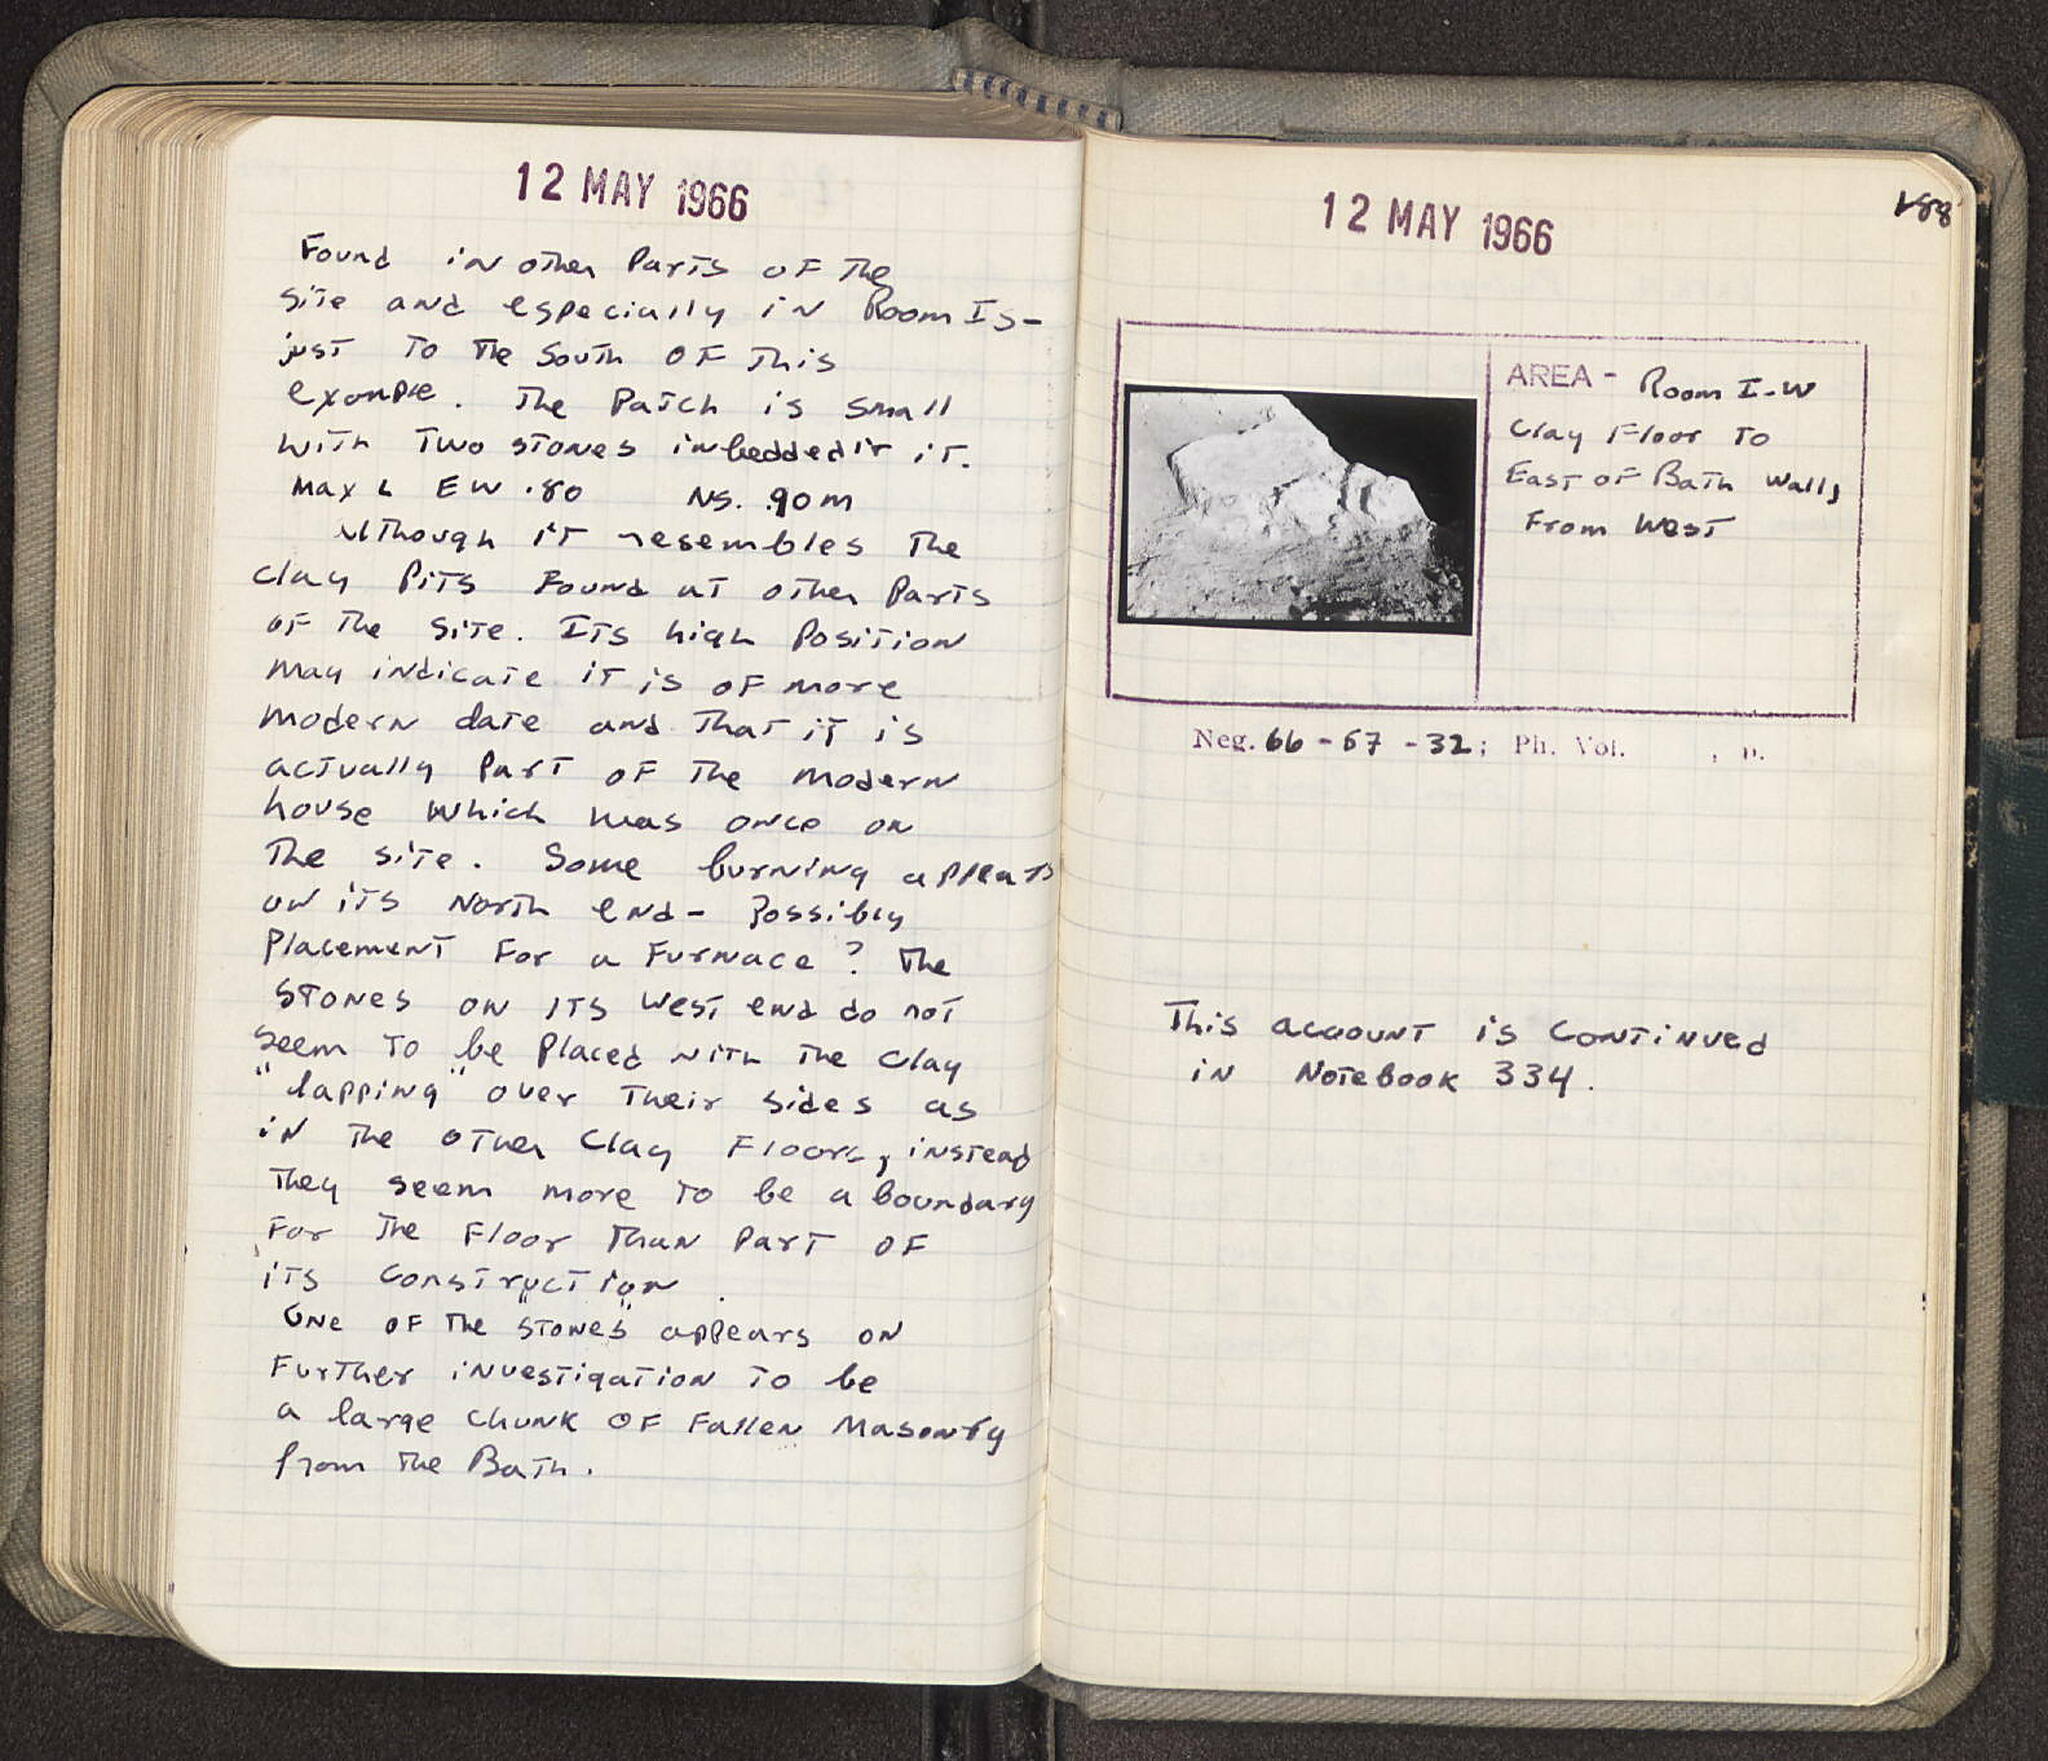 12 MAY 1966
Found in other Parts of the
site and especially in Room IS-
just to the South of this
example. The Patch is small
with two stones imbedded in it.
Max L EW .80 NS. .90m
Although it resembles the
clay Pits Found at other Parts
of the Site. Its high Position
may indicate it is of more
modern date and that it is
actually Part of the modern
house which was once on
the site. Some burning appears
on its North end- Possibly
Placement For a Furnace? The
stones on its West end do not
seem to be Placed with the clay
"lapping" over their sides as
in the other Clay Floors, instead
they seem more to be a boundary
For the Floor than Part of
its construction.
One of the "stones" appears on
Further investigation to be
a large chunk of Fallen Masonry
from the Bath.
12 MAY 1966
188
AREA - Room I-W
Clay Floor to
East of Bath Walls
From West
Neg. 66-67-32; Ph. Vol. , p.
This account is continued
in Notebook 334.